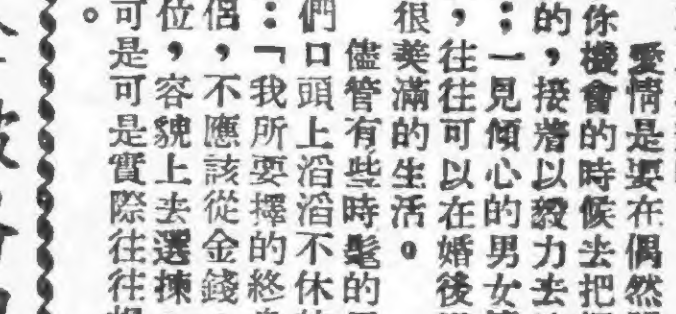 愛情是要在偶然
你機會的時候去把
的，接着以毅力去
；一見傾心的男女
，往往可以在婚後
很美滿的生活。
儘管有些時髦的
們口頭上滔滔不休
：「我所要擇的終
侶，不應該從金錢
位，容貌上去選揀
可是可是實際往往
。